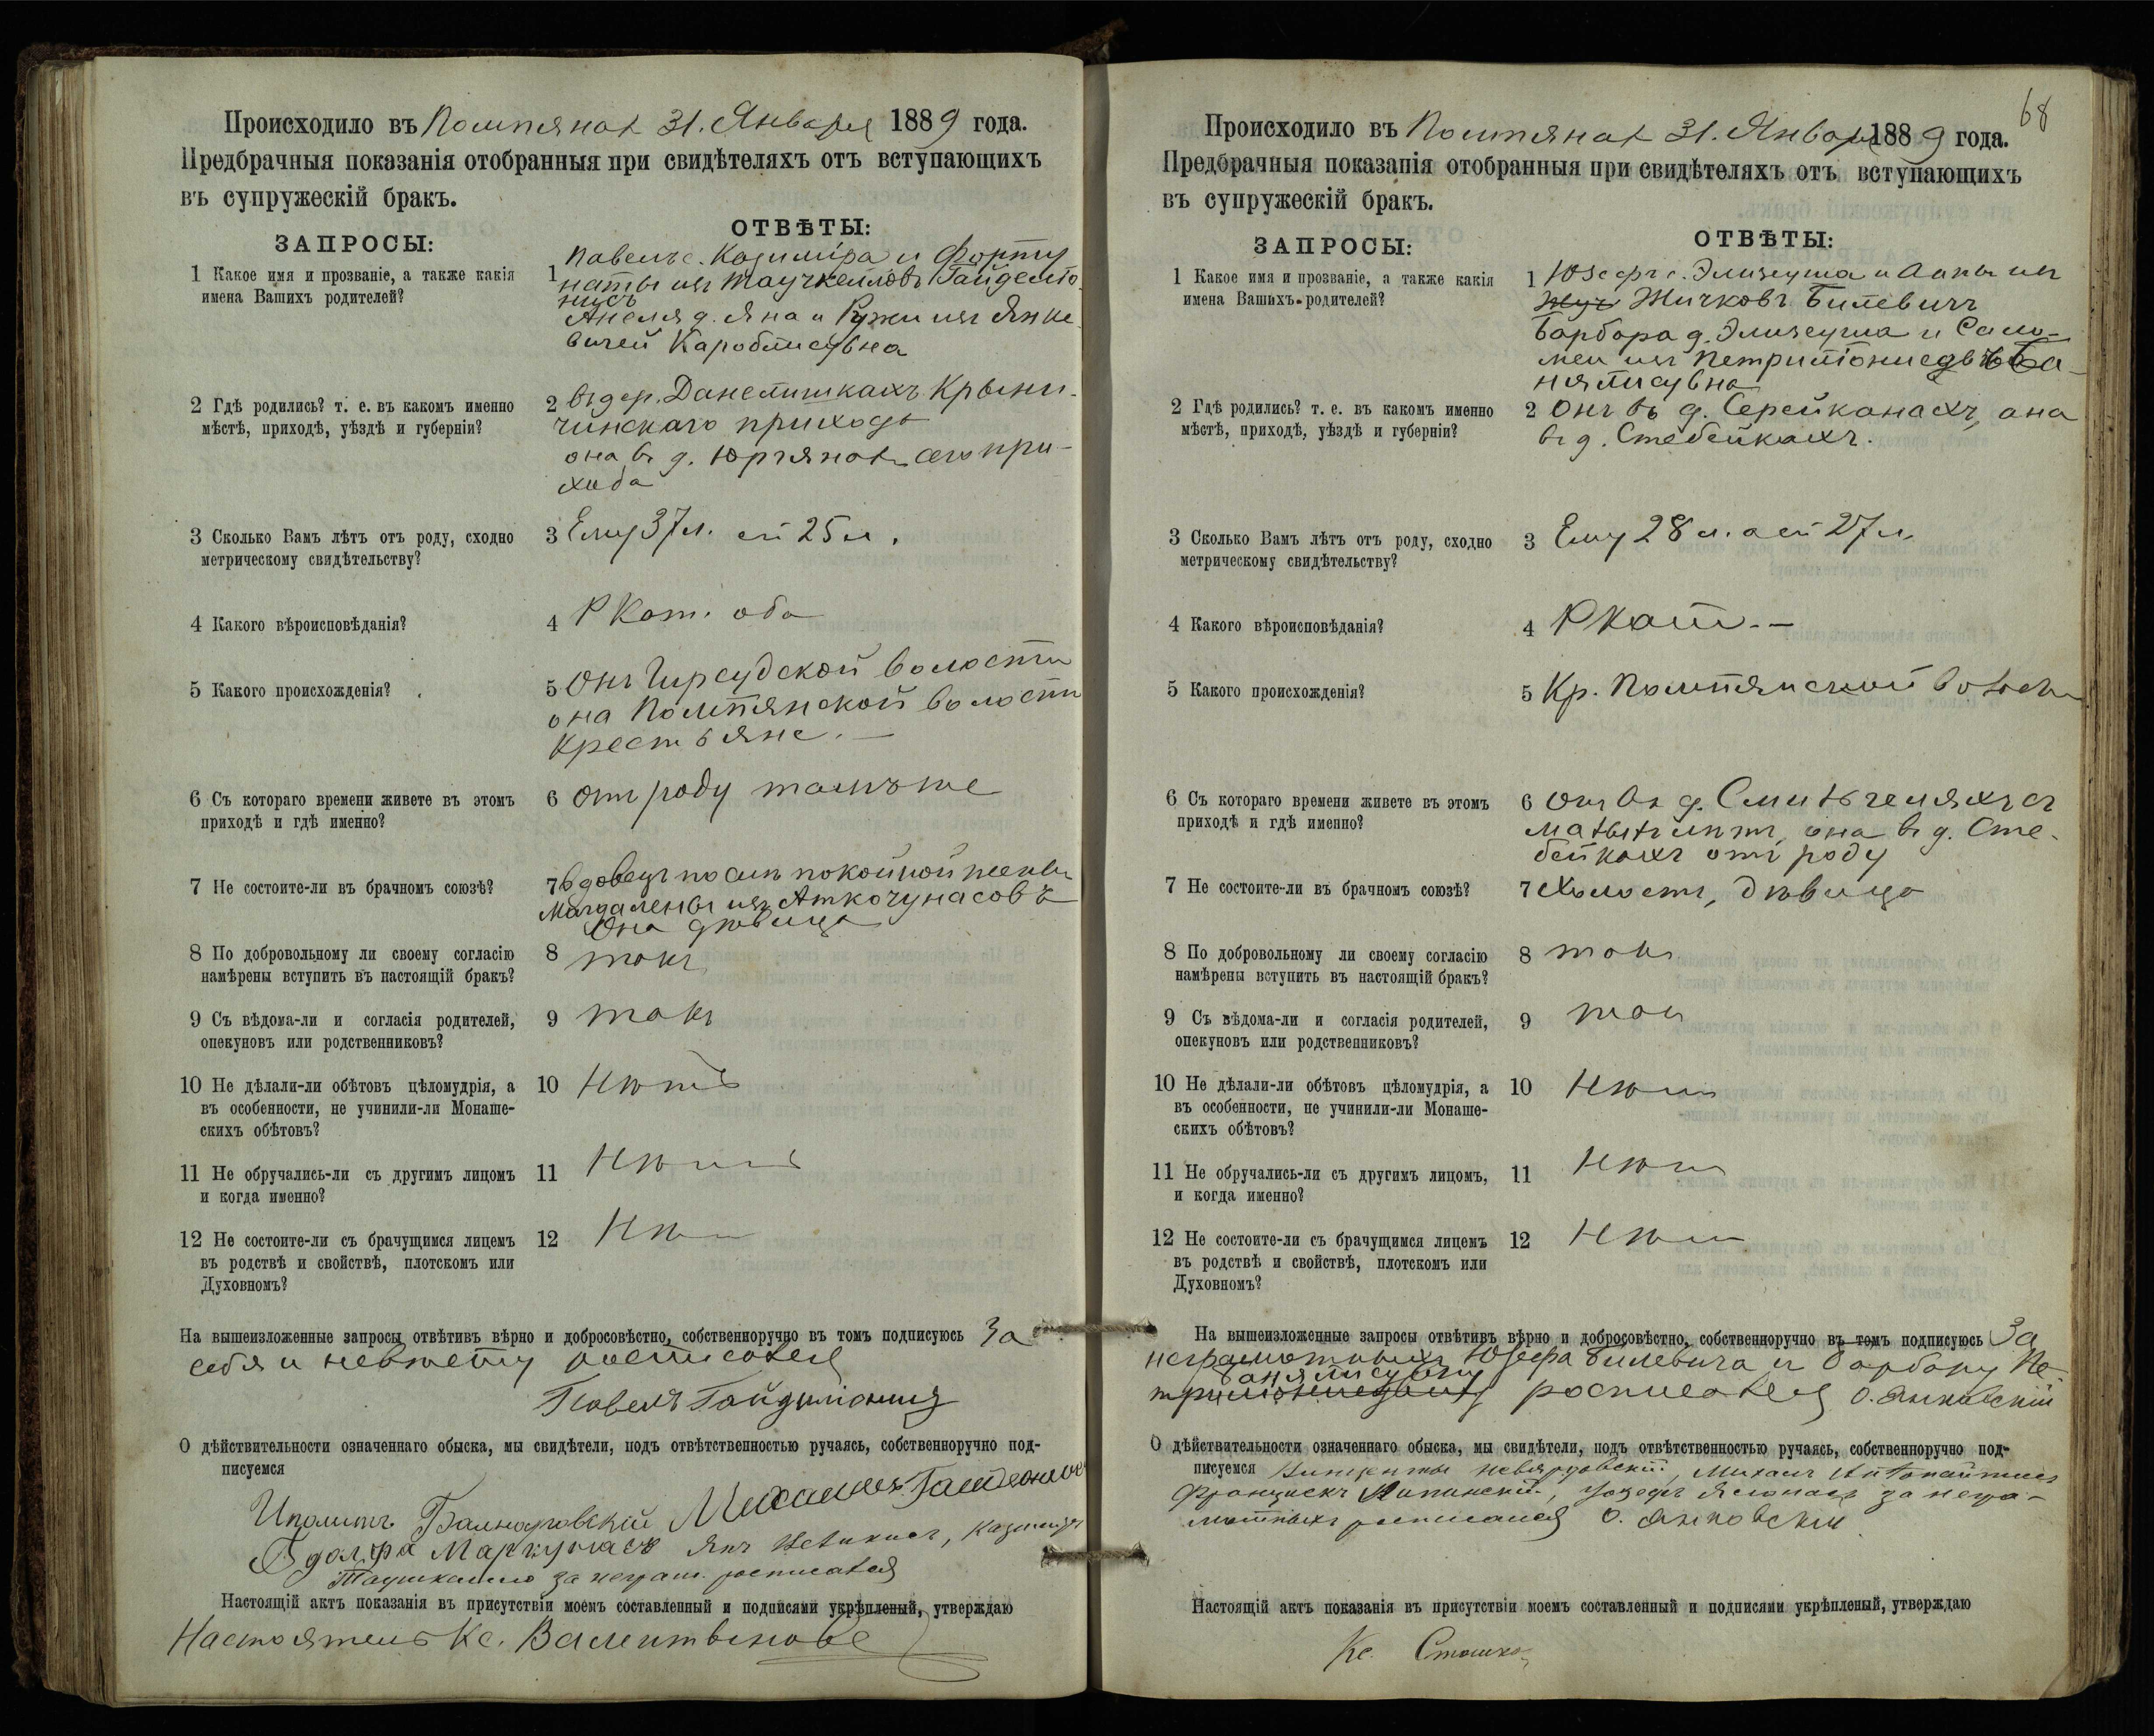 Происходило въ Помпянах 31. Января 1889 года.
Предбрачныя показанія отобранныя при свидѣтеляхъ отъ вступающихъ
въ супружескій бракъ.
ЗАПРОСЫ:
ОТВѢТЫ:
1 Какое имя и прозваніе, а также какія
имена Вашихъ родителей?
1 Павелъ с. Казиміра и Форту
наты изъ
Анеля д. Яна и Ружи изъ Янке
вичей
2 Гдѣ родились? т. е. въ какомъ именно
мѣстѣ, приходѣ, уѣздѣ и губерніи?
2 въ дер. Данелишкахъ Крыни-
чинскаго прихода
она въ д. Юргянах сего при-
хода
3 Сколько Вамъ лѣтъ отъ роду, сходно
метрическому свидѣтельству?
3 Ему 37 л. ей 25 л.
4 Какого вѣроисповѣданія?
4 Р Кат. оба
5 Какого происхожденія?
5 Онъ Гирсудской волости
она Помпянской волости
крестьяне. —
6 Съ котораго времени живете въ этомъ
приходѣ и гдѣ именно?
6 Отъ роду тамъ же
7 Не состоите-ли въ брачномъ союзѣ?
7 вдовецъ посль покойной жены
Магдалены изъ Аткочунасовъ
Она дѣвица
8 По добровольному ли своему согласію
намѣрены вступить въ настоящій бракъ?
8 такъ
9 Съ вѣдома-ли и согласія родителей,
опекуновъ или родственниковъ?
9 такъ
10 Не дѣлали-ли обѣтовъ цѣломудрія, а
въ особенности, не учинили-ли Монаше-
скихъ обѣтовъ?
10 Нѣтъ
11 Не обручались-ли съ другимъ лицомъ
и когда именно?
11 Нѣтъ
12 Не состоите-ли съ брачущимся лицемъ
въ родствѣ и свойствѣ, плотскомъ или
Духовномъ?
12 Нѣтъ
На вышеизложенные запросы отвѣтивъ вѣрно и добросовѣстно, собственноручно въ томъ подписуюсь За
себя и невѣсту росписался
Павелъ
О дѣйствительности означеннаго обыска, мы свидѣтели, подъ отвѣтственностью ручаясь, собственноручно под-
писуемся
Иполитъ
Адолфъ Маркунасъ Янъ Казимиръ
за неграм. росписался
Настоящій актъ показанія въ присутствіи моемъ составленный и подписями укрѣпленый, утверждаю
Настоятель Кс.
68
Происходило въ Помпянах 31. Января 1889 года.
Предбрачныя показанія отобранныя при свидѣтеляхъ отъ вступающихъ
въ супружескій бракъ.
ЗАПРОСЫ:
ОТВѢТЫ:
1 Какое имя и прозваніе, а также какія
имена Вашихъ родителей?
1 Юзефъ с. Элизеуша и Анны изъ
Жичковъ Билевичъ
Барбора д. Элизеуша и Сало-
меи изъ
2 Гдѣ родились? т. е. въ какомъ именно
мѣстѣ, приходѣ, уѣздѣ и губерніи?
2 Онъ въ д. Серейканахъ, она
въ д. Стебейкахъ.
3 Сколько Вамъ лѣтъ отъ роду, сходно
метрическому свидѣтельству?
3 Ему 28 л. а ей 27 л.
4 Какого вѣроисповѣданія?
4 Р Кат. —
5 Какого происхожденія?
5 Кр. Помпянской волости
6 Съ котораго времени живете въ этомъ
приходѣ и гдѣ именно?
6 Онъ въ д. съ
лѣтъ, она въ д. Сте-
бейкахъ отъ роду
7 Не состоите-ли въ брачномъ союзѣ?
7 Холостъ, дѣвица
8 По добровольному ли своему согласію
намѣрены вступить въ настоящій бракъ?
8 такъ
9 Съ вѣдома-ли и согласія родителей,
опекуновъ или родственниковъ?
9 такъ
10 Не дѣлали-ли обѣтовъ цѣломудрія, а
въ особенности, не учинили-ли Монаше-
скихъ обѣтовъ?
10 Нѣтъ
11 Не обручались-ли съ другимъ лицомъ,
и когда именно?
11 Нѣтъ
12 Не состоите-ли съ брачущимся лицемъ
въ родствѣ и свойствѣ, плотскомъ или
Духовномъ?
12 Нѣтъ
На вышеизложенные запросы отвѣтивъ вѣрно и добросовѣстно, собственноручно въ томъ подписуюсь За
неграмотныхъ Юзефа Билевича и Барбору
росписался О. Янковскій
О дѣйствительности означеннаго обыска, мы свидѣтели, подъ отвѣтственностью ручаясь, собственноручно под-
писуемся Михаилъ
Францискъ Липинскій, за негра-
мотныхъ росписался О. Янковскій
Настоящій актъ показанія въ присутствіи моемъ составленный и подписями укрѣпленый, утверждаю
Кс.